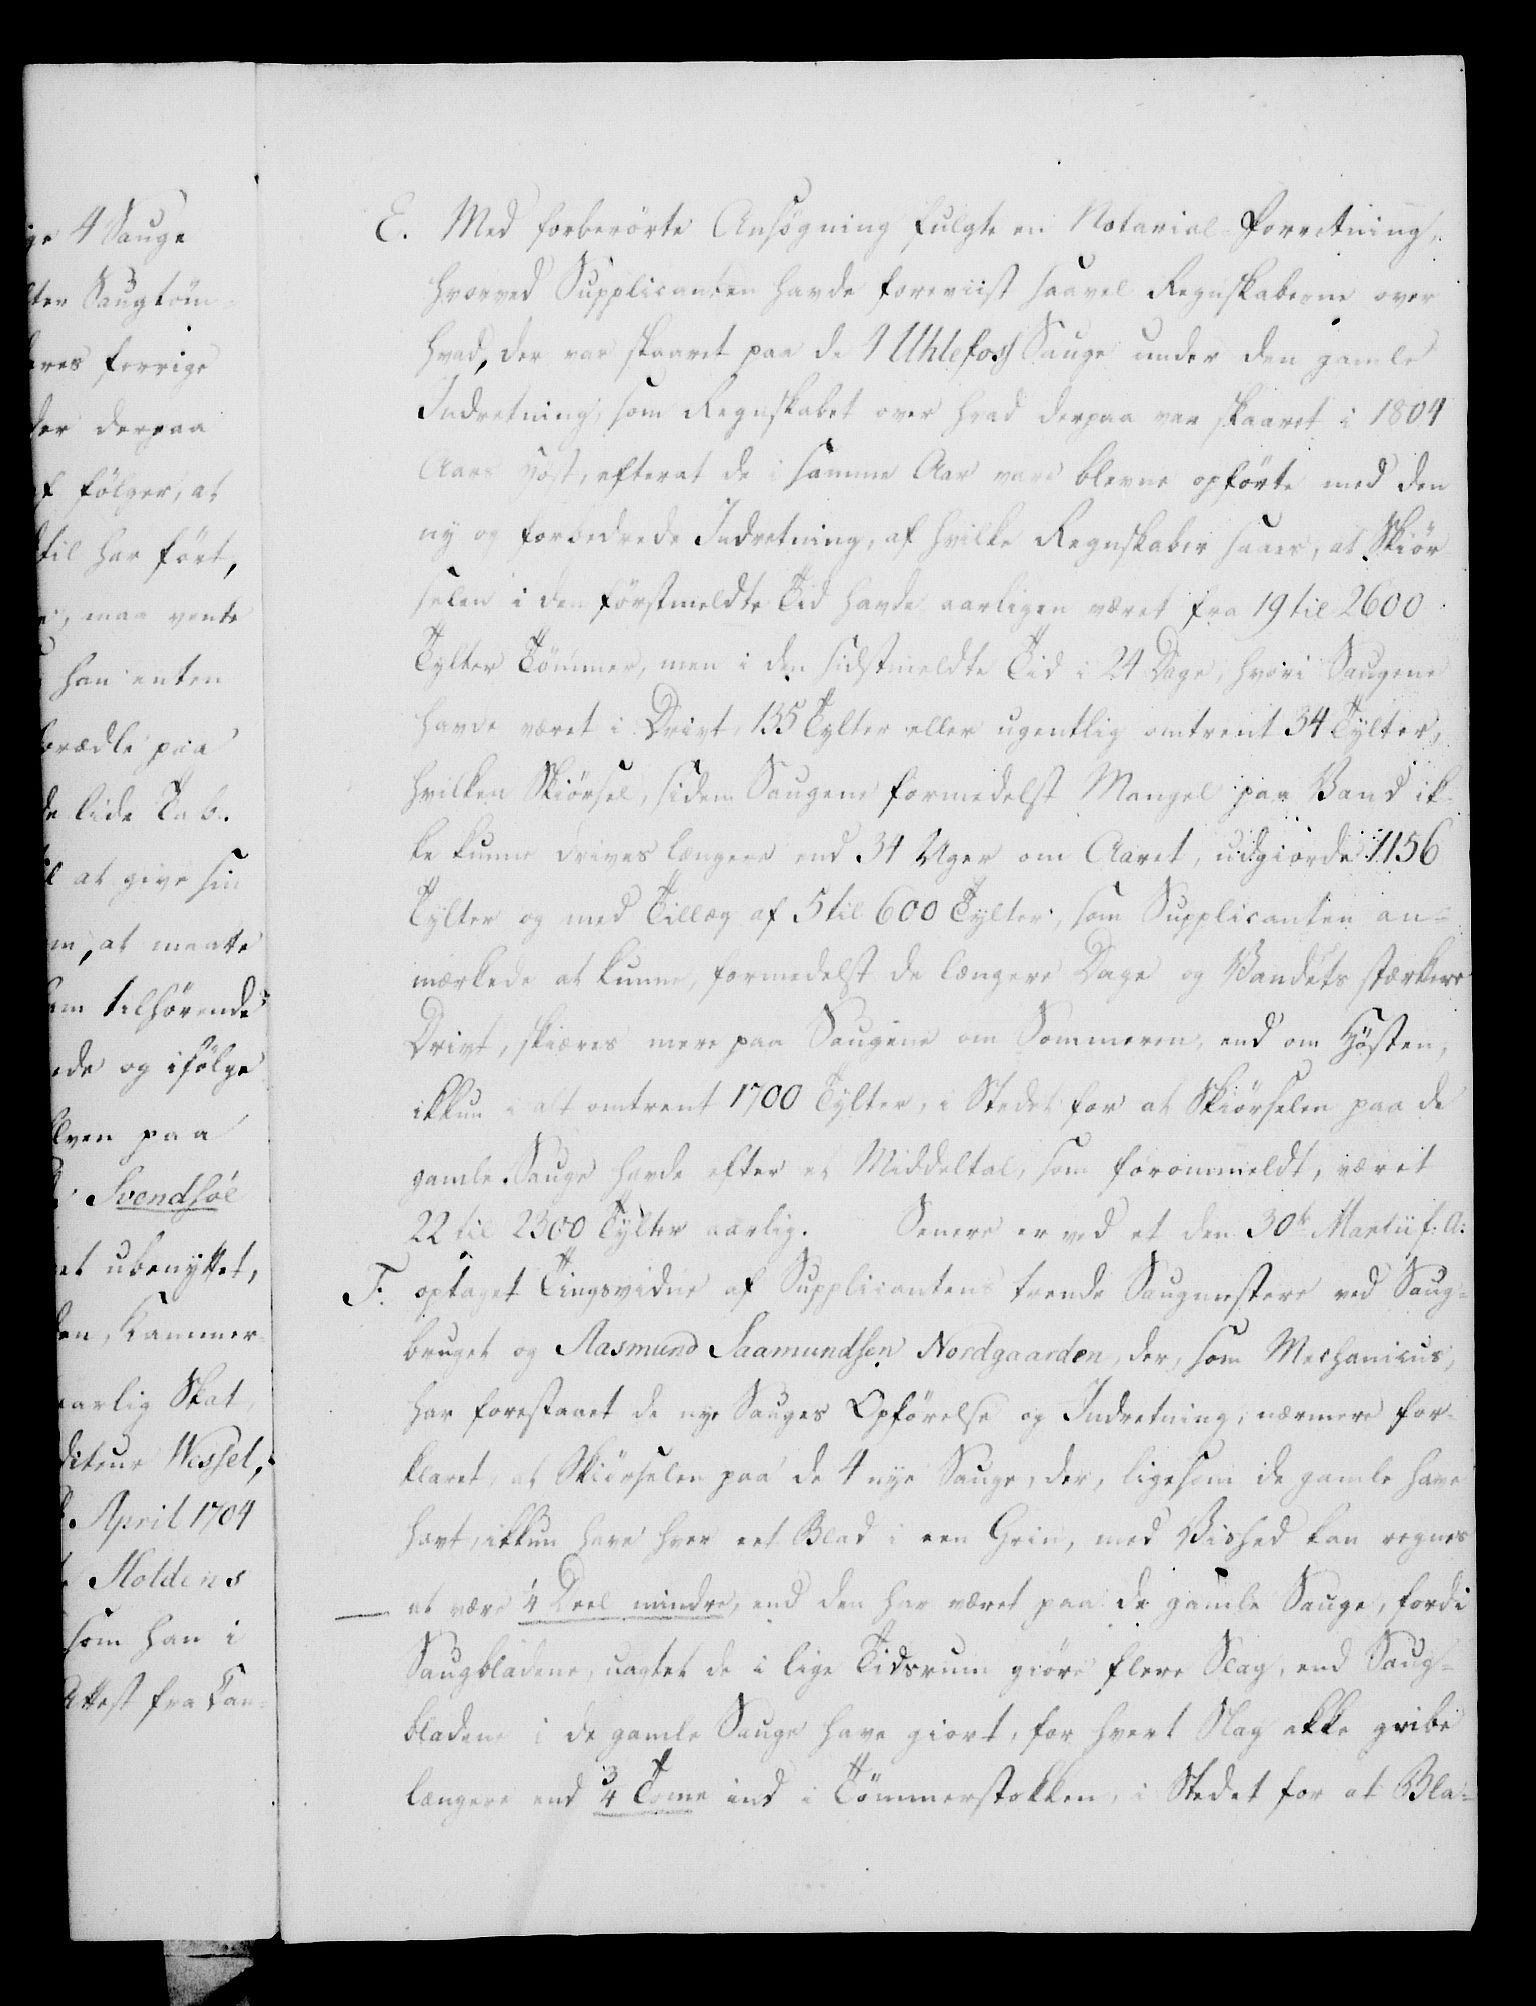 ige 4 Sauge
lter Saugtöm-
eres forrige
der derpaa
af fölger, at
dtil har fört,
maa vente
han enten
forædle paa
de lide Tab.
til at give sin
m, at maatte
ham tilhörende
ede og ifölge
Elven paa
Svendsöe
et ubenyttet,
den, Kammer-
aarlig Skat,
diteur Wessel,
April 1704
Holdens
som han i
Attest fra Kan-
E. Med forberörte Ansögning fulgte en Notarial-Forretning,
hvorved Supplicanten havde foreviist saavel Regnskaberne over
hvad, der var skaaret paa de 4 Uhlefoss Sauge under den gamle
Indretning, som Regnskabet over hvad derpaa var skaaret i 1804
Aars Höst, efterat de i samme Aar vare blevne opförte med den
ny og forbedrede Indretning, af hvilke Regnskaber saaes, at Skiör
selen i den förstmeldte Tid havde aarligen været fra 19 til 2600
Tylter Tömmer, men i den sidstmeldte Tid i 24 Dage, hvori Saugene
havde været i Drivt, 135 Tylter eller ugentlig omtrent 34 Tylter,
hvilken Skiörsel, siden Saugene formedelst Mangel paa Vand ik-
ke kunne drives længere end 34 Uger om Aaret, udgiorde 1156
Tylter og med Tillæg af 5 til 600 Tylter, som Supplicanten an-
mærkede at kunne, formedelst de længere Dage og Vandets stærkere
Drivt, skiæres mere paa Saugene om Sommeren, end om Hösten,
ikkun i alt omtrent 1700 Tylter, i Stedet for at Skiörselen paa de
gamle Sauge havde efter et Middeltal, som forommeldt, været
22 til 2300 Tylter aarlig. Senere er ved et den 30te Martii f. A.
F. optaget Tingsvidne af Supplicantens tvende Saugmestere ved Saug-
bruget og Aasmund Saamundsen Nordgaarden, der, som Mechanicus,
har forestaaet de nye Sauges Opförelse og Indretning, nærmere for-
klaret, at Skiörselen paa de 4 nye Sauge, der, ligesom de gamle have
havt, ikkun have hver eet Blad i een Grin, med Vished kan regnes
at være 1/4 Deel mindre, end den har været paa de gamle Sauge, fordi
Saugbladene, uagtet de i lige Tidsrum giöre flere Slag, end Saug-
bladene i de gamle Sauge have giort, for hvert Slag ikke gribe
længere end 3/4 Tomme ind i Tömmerstokken, i Stedet for at Bla-